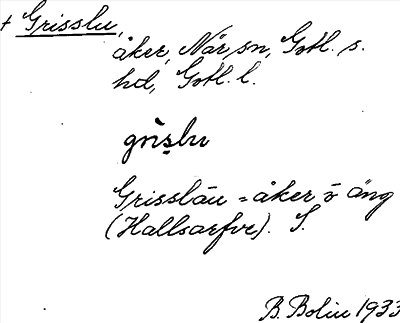 + Grisslu,
åker, När sn, Gotl. s.
hd, Gotl. l.
grìs̱lu
Grisslāu = åker o äng
(Hallsarfve). S.
B. Bolin 1933